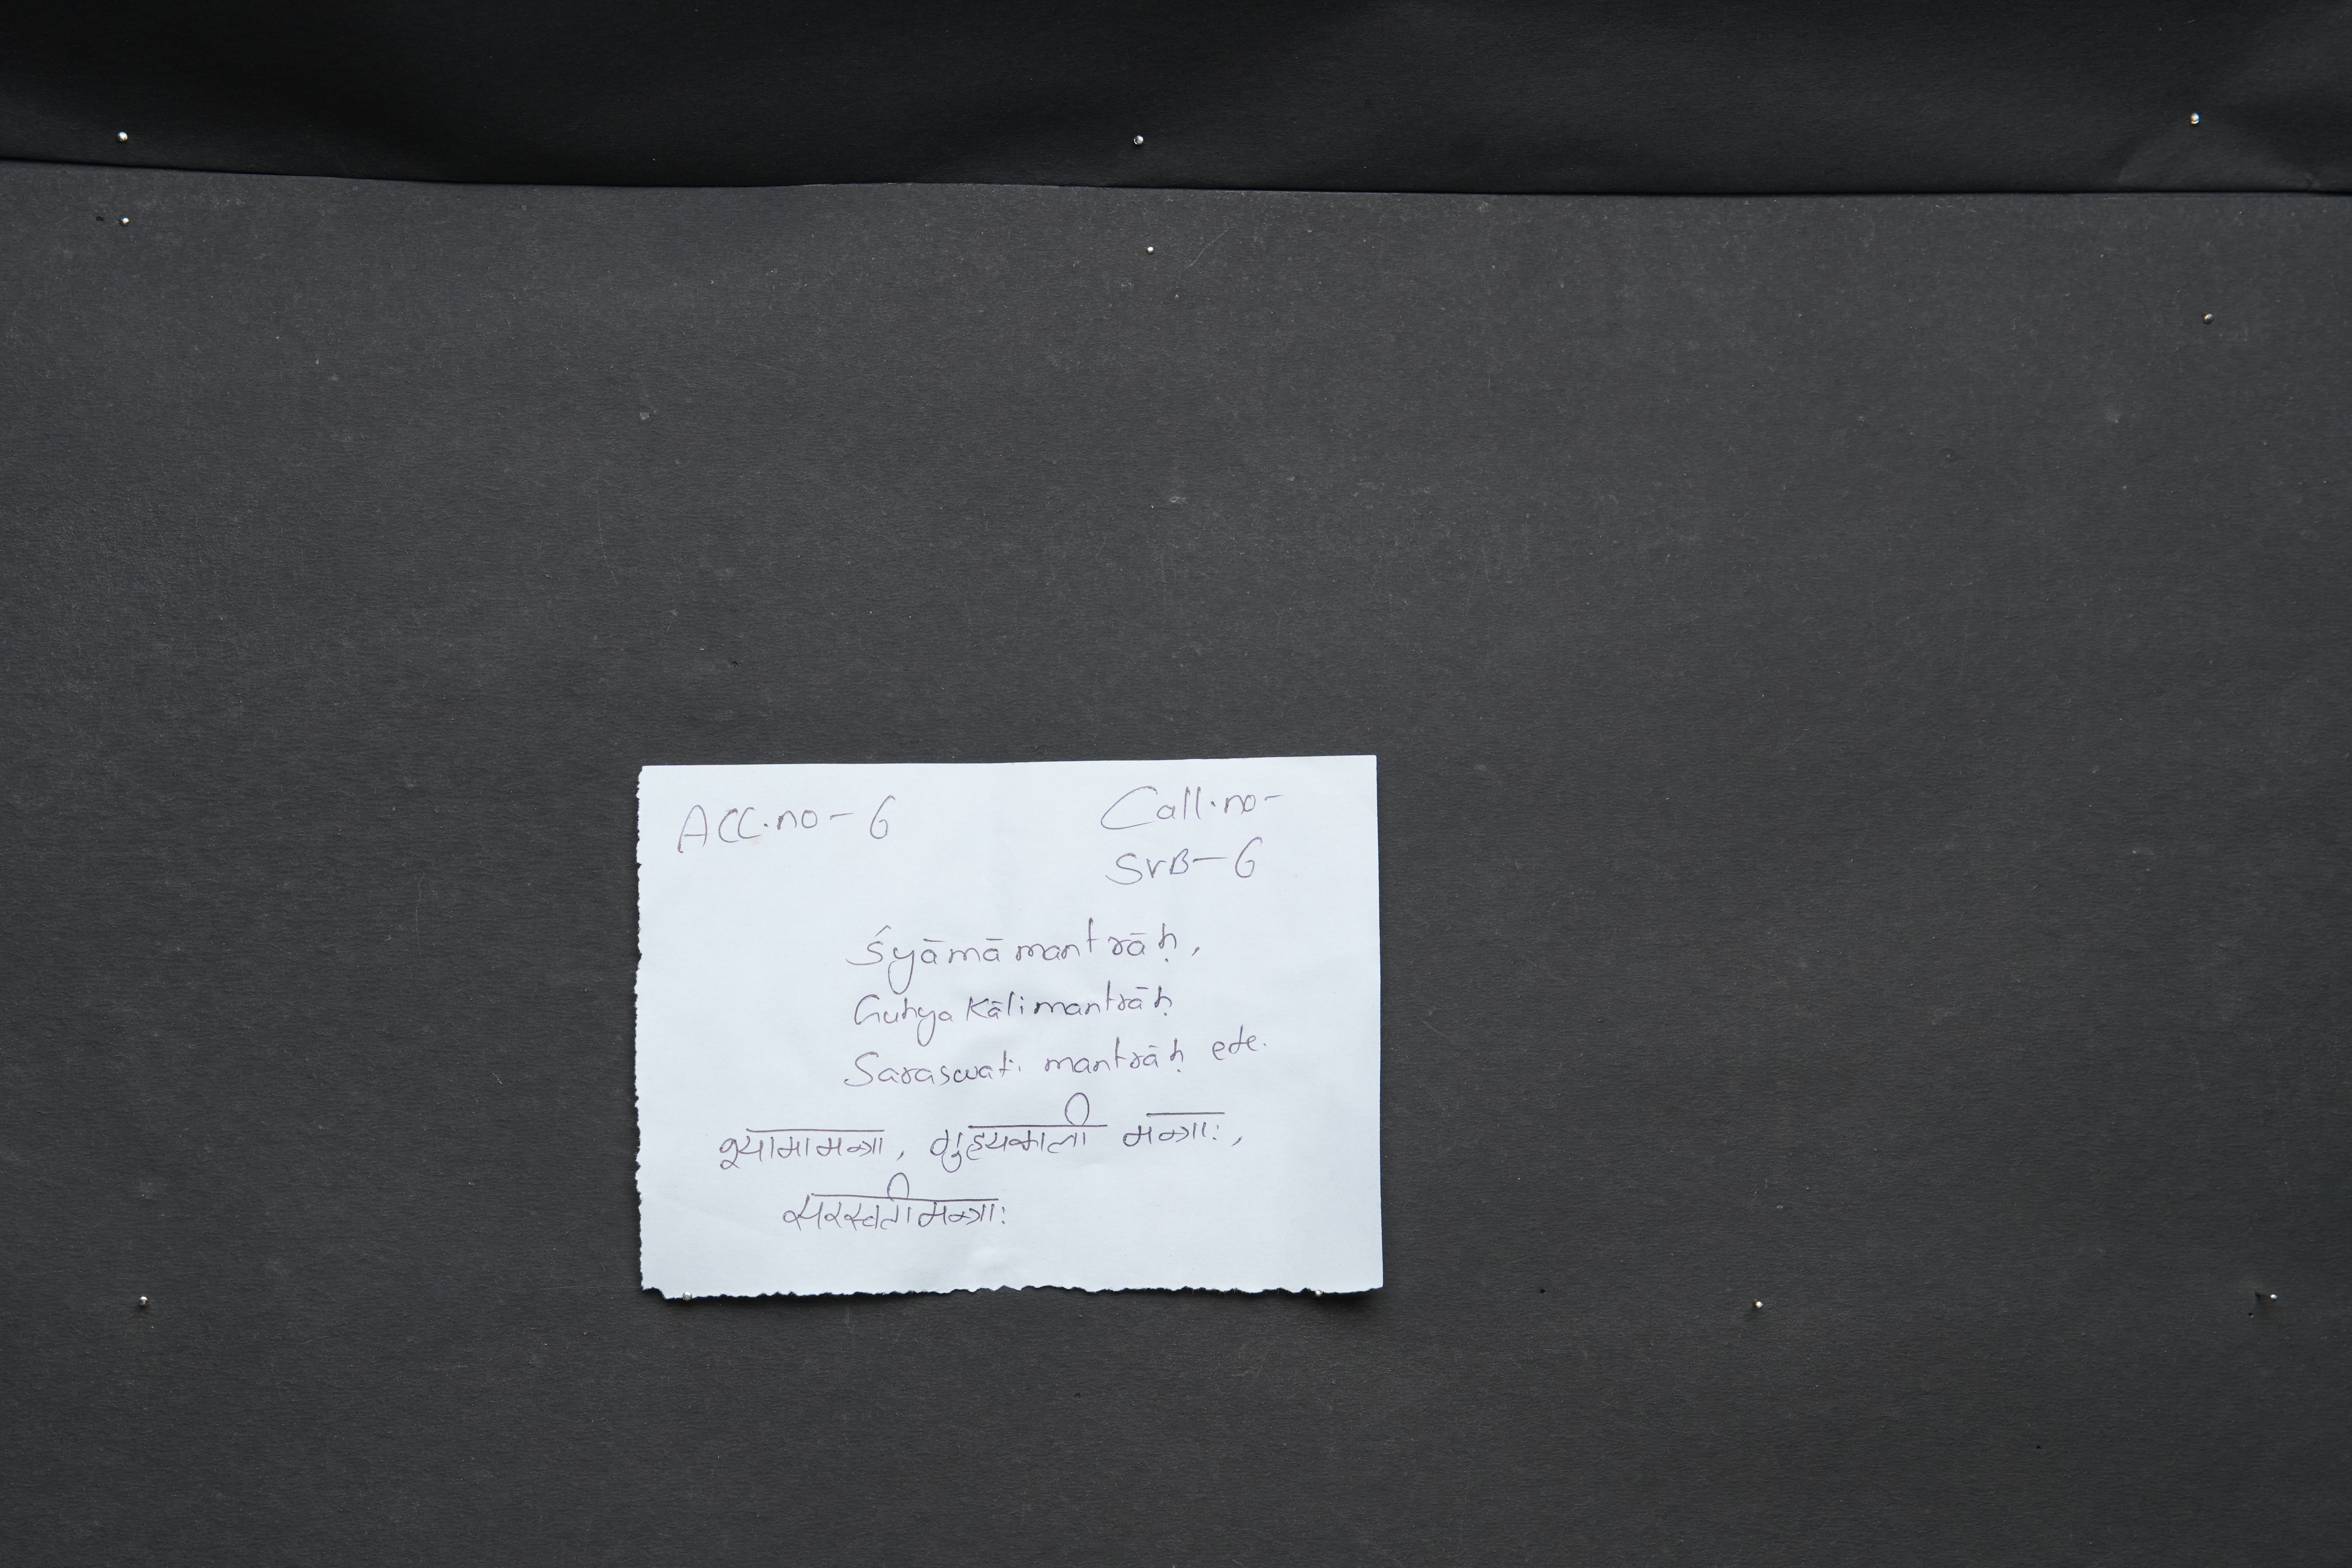 ACC.no- 6
Call.no-
SVB- 6
Śyāmāmantrāḥ,
Guhya Kālimantrāḥ
Saraswati mantrāḥ etc.
श्यामामन्त्रा, गुह्यकाली मन्त्राः,
सरस्वतीमन्त्राः